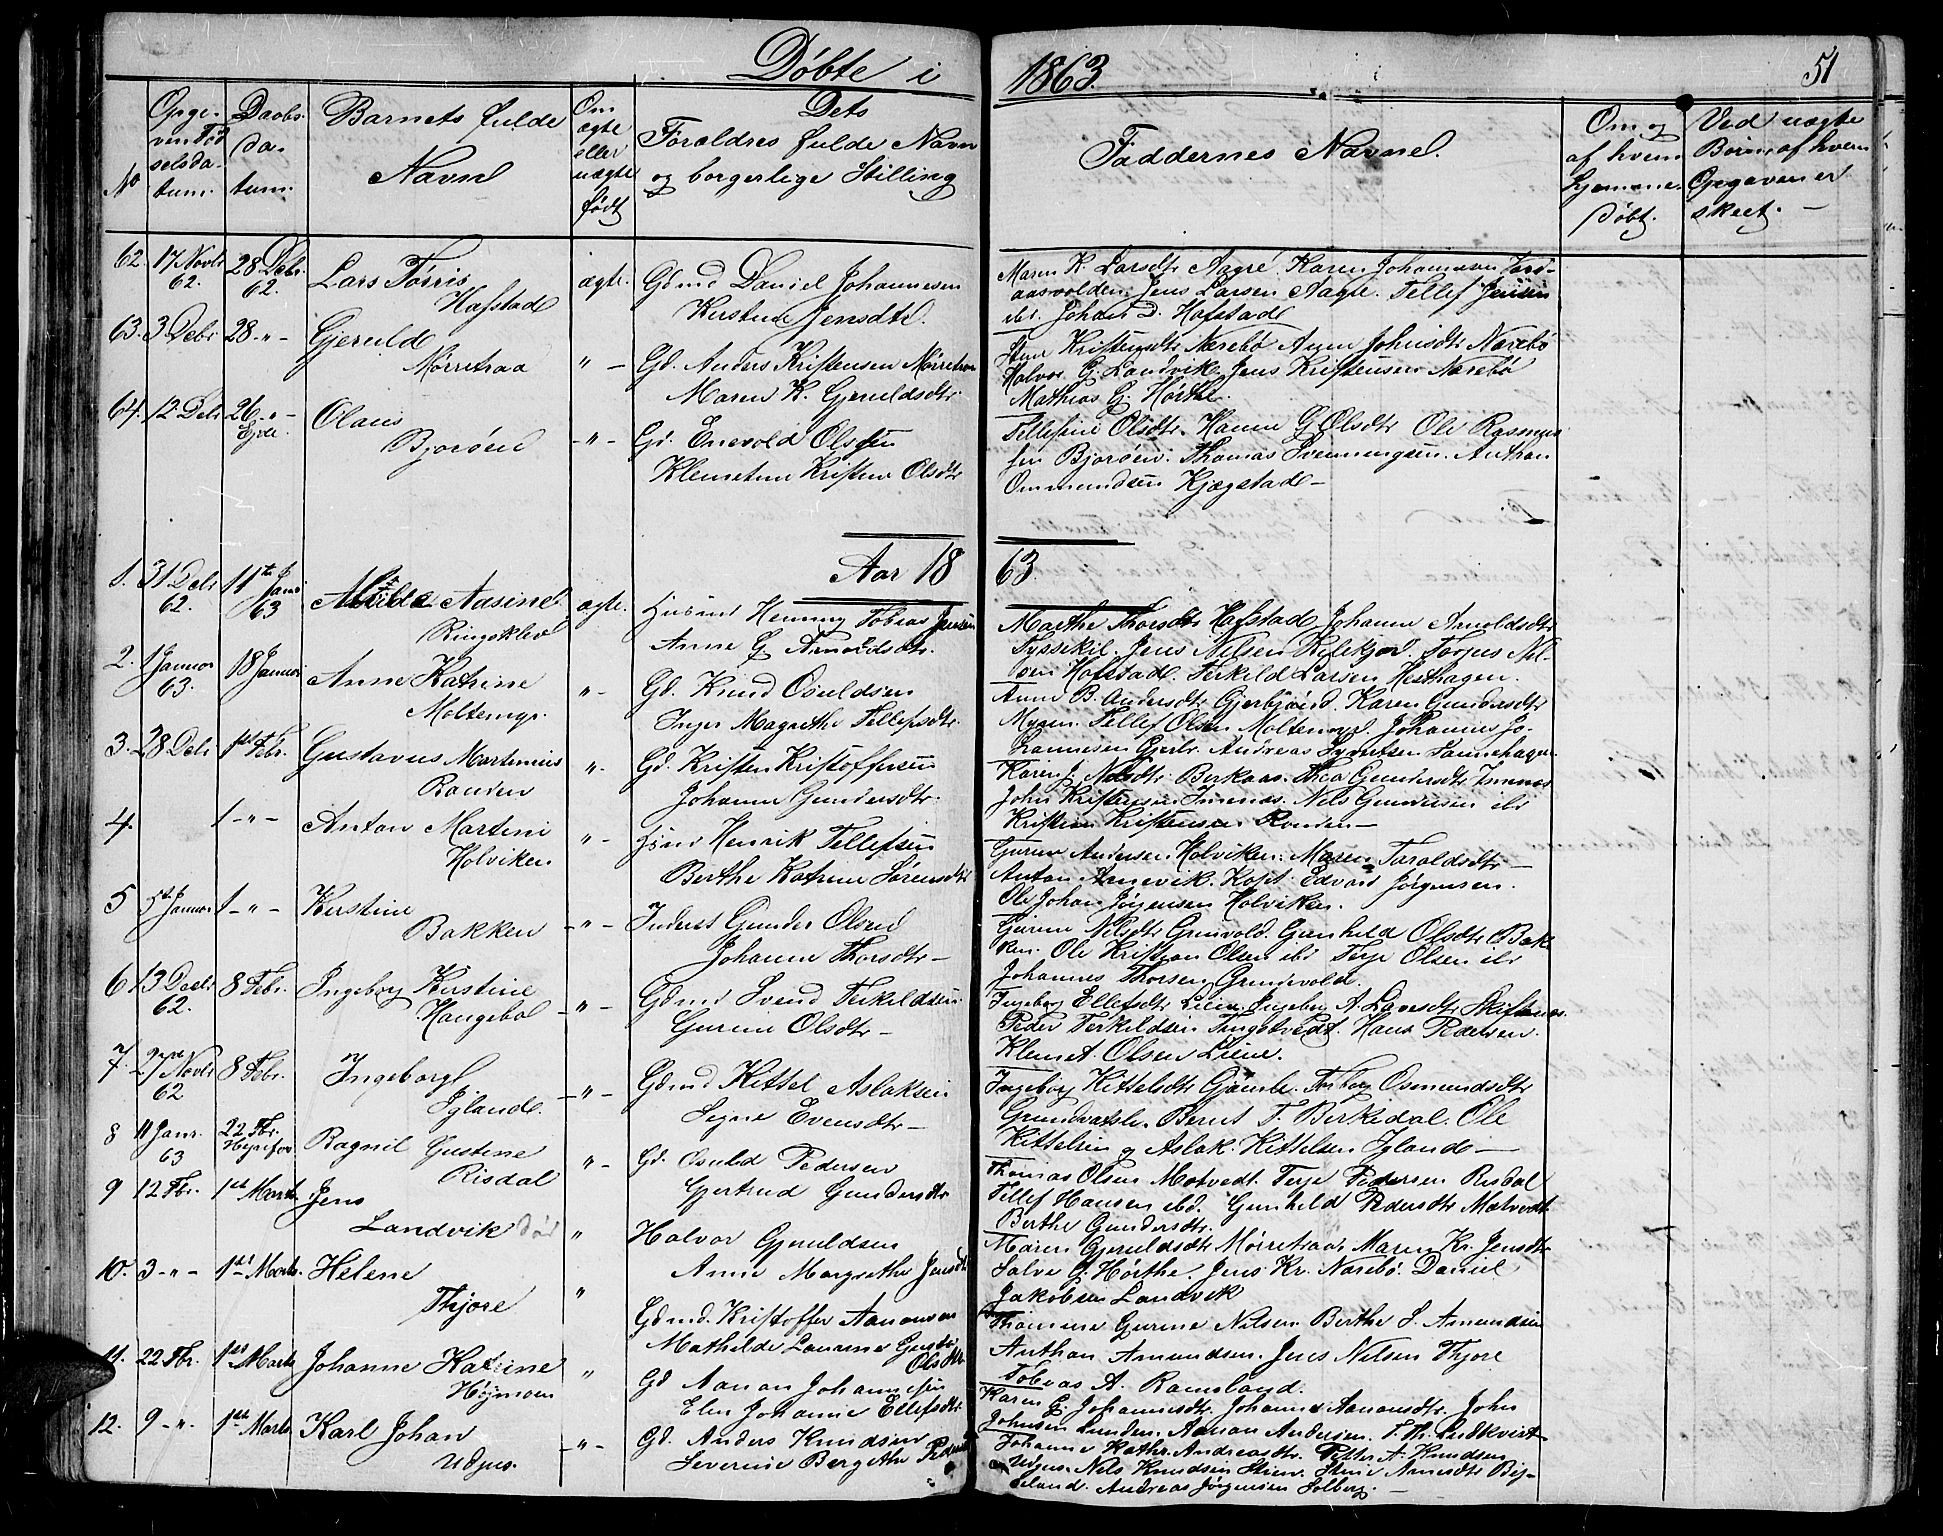 Døbte i 1863.
51
No
Opgiven Fødselsdatum.
Daabsdatum.
Barnets fulde Navne
Om ægte eller uægte født
Dets Forældres fulde Navn og borgerlige Stilling
Faddernes Navne.
Om og af hvem hjemmedøbt.
Ved uægte Børn af hvem Opgaven er skeet. —
62. 17 Novbr 62. 28 Debr 62. Lars Tørris Hafstad ægte. Gdmd Daniel Johannesen
Kirstine Jensdtr.
Maren K. Larsdtr Aagre. Karen Johannesen
aasvolden. Jens Larsen Aagre. Tellef Jensen
ibr. Johan D. Hofstad
63. 3 Debr 28 -"- Gjeruld Mørretraa " - Gd. Anders Kristensen Mørretraa
Maren K. Gjeruldsdtr
Stine Kristensdtr Narebø Anne Johnsdtr Narebø
Halvor G. Landvik. Jens Kristensen Narebø
Mathias G. Hørthe.
64. 12 Debr 26 -"- Ejde. Olaus Bjorøen -"- Gd. Enevold Olsen
Klemetine Kristine Olsdtr
Tellefine Olsdtr. Hanne G. Olsdtr Ole Rasmus
sen Bjorøen. Thomas Svenningsen. Anthon
Ommundsen Kjægstad —
Aar 1863.
1. 31 Debr 62. 11te Janr 63 Aasine Ringsklev ægte. Husmd Henning Tobias Jensen
Anne G. Arnoldsdtr.
Marthe Thorsdtr Hafstad Johanne Arnoldsdtr
Tyssekil. Jens Nilsen Rilekjær. Torjus Nil-
sen Hofstad. Terkild Larsen Hesthagen.
2. 1 Januar 63. 18 Januar Anne Katrine Moltemyr. " - Gd. Knud Osuldsen
Inger Magrethe Tellefsdtr.
Anne B. Andersdtr Gjerbjønd. Karen Gundersdtr
Mygen. Tellef Olsen Moltemyr. Johannes Jo-
hannesen Gjerbr. Andreas Syvertsen Sannehagen
3. 28 Debr 1ste Febr. Gustavus Martinius Ronden " - Gd. Kristen Kristoffersen
Johanne Gundersdtr.
Karen J. Nilsdtr Berkaas. Thea Gundersdtr Imenæs
John Kristensen Imenæs. Nils Gunersen ibr
Kristen Kristensen Ronden —
4. 1 -"- Anton Martini Holviken " - Husmd Henrik Tellefsen
Berthe Katrine Sørensdtr
Gurine Andersen Holviken. Maren Taraldsdtr —
Anton Arnevik. Kapt. Edvard Jørgensen.
Ole Johan Jørgensen Holviken.
5 5te Januar 1 -"- Kirstine Bakken -"- Inderst Gunder Olsen
Johanne Thorsdtr —
Gurine Nilsdtr Grunvold. Gunhild Olsdtr Bak
ken. Ole Kristian Olsen ibr Terje Olsen ibr
Johannes Thorsen Grundvold.
6 13 Decbr 62. 8 Febr. Ingeborg Kirstine Haugebal -"- Gdmd Svend Terkildsen
Gurine Olsdtr —
Ingeborg Ellefsdtr Liene. Ingeborg A. Larsdtr Skiftenes
Peder Terkildsen Tingstvedt. Hans Pedersen
Klemet Olsen Liene.
7. 27 Novbr 62 8 Febr. Ingeborg Igland. -"- Gdmd Kittel Aslaksen
Signe Evensdtr —
Ingeborg Kittelsdtr Gjamle. Torborg Osmundsdtr
Grundvatsli. Bernt T. Birkedal. Ole
Kittelsen og Aslak Kittelsen Igland —
8 11 Janr. 63 22 Fbr. Ragnil Gustine Risdal " - Gd. Osuld Pedersen
Gjertrud Gundersdtr
Thomas Olsen Motvedt Terje Pedersen Risdal
Tellef Hansen ibd. Gunhild Pedersdtr Motvedt
Berthe Gundersdtr.
9 12 Fbr. 1ste Marts Jens Landvik død " Halvor Gjeruldsen
Anne Margrethe Jensdtr
Maren Gjeruldsdtr Mørretraa. Maren Kr. Jensdtr
Salve G. Hørthe. Jens Kr. Narebø. Daniel
Jakobsen Landvik
10. 3 -"- 1ste Marts. Helene Thjore " Gdmd. Kristoffer Aanonsen
Mathilde Laurine Olsdtr
Thomine Gurine Nilsen Berthe S. Amundsen
Anthon Amundsen. Jens Nilsen Thjore
Tobias A. Ramsland.
11. 22 Fbr. 1ste Marts Johanne Katrine " Gd Aanon Johannesen
Elen Johanne Ellefsdtr.
Karen G. Johannesdtr. Johanne Aanonsdtr. John
Johnsen Lunden. Aanon Andersen. T. Th. Lindkvist
12. 9 -"- 1ste Marts Karl Johan Udjus. -"- Gd. Anders Knudsen
Severine Bergethe Pedersdtr
Johanne Kathr. Andreasdtr. Petter A. Knudsen
Udjus. Nils Knudsen Stien. Stine Arnesdtr Bie
Andreas Jørgensen Solberg. —